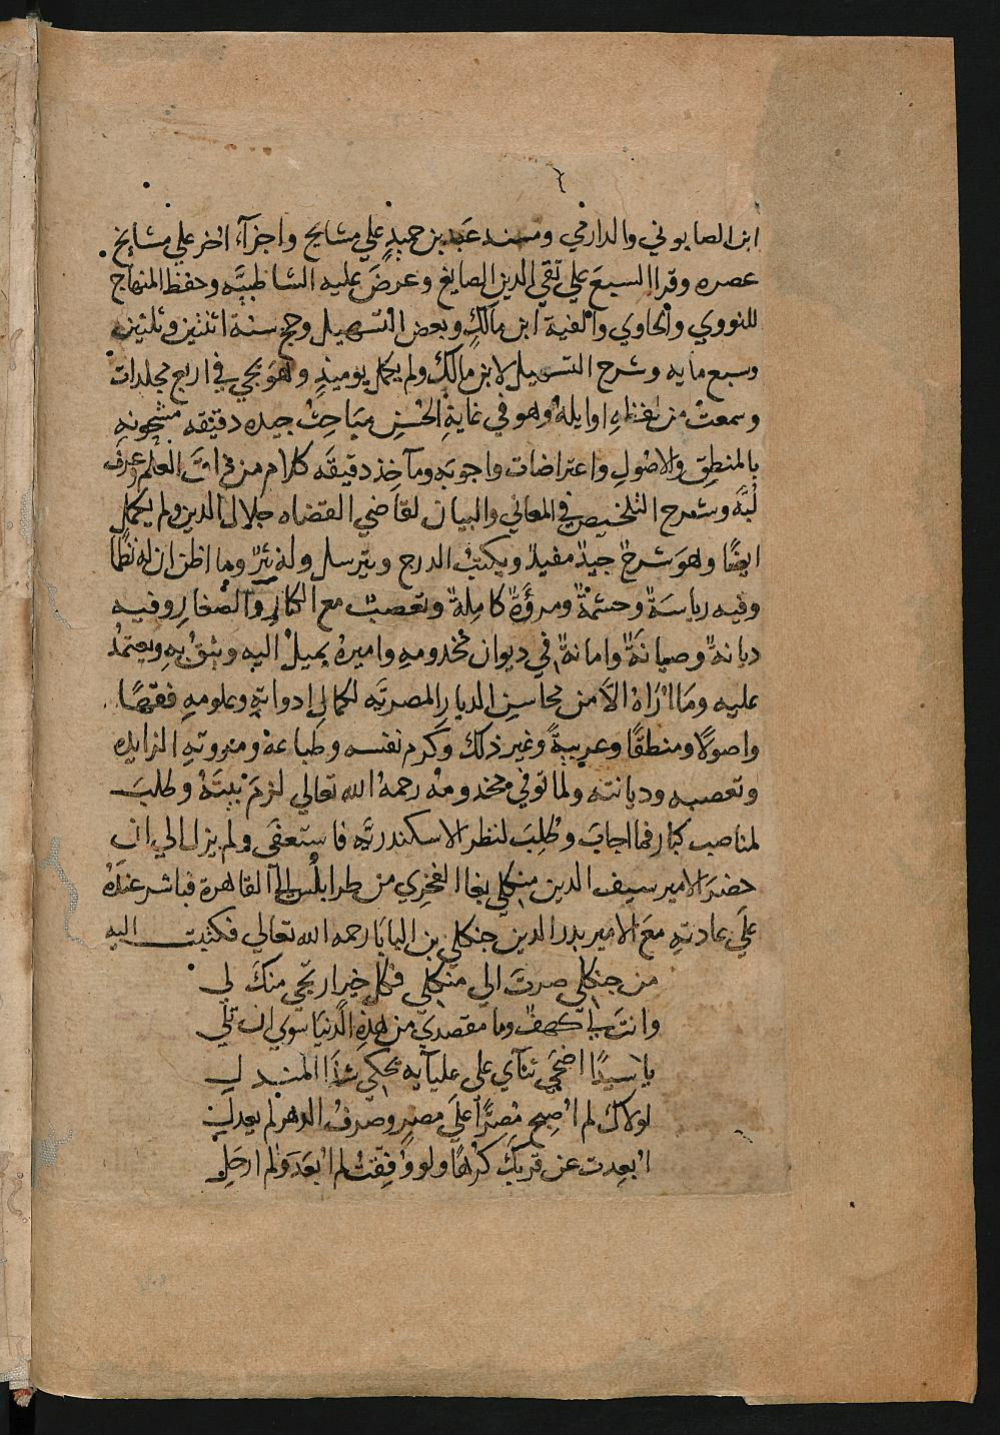 ابن الصابوني والدارمي ومسند عبد بن حميد علي مشايخ واجزآء اخر علي مشايخ
عصره وقرا السبع علي تقي الدين الصايغ وعرض عليه الشاطبيَّه وحفظ المنهاج
للنووي والحاوي والفية ابن مالك وبعض التسهيل وحج سنة اثنتين وثلثين
وسبع مايه وشرح التسهيل لابن مالك ولم يكمل يوميذٍ وهو يجي في اربع مجلدات
وسمعت من لفظه اوايله وهو في غاية الحسن مباحث جيده دقيقه مشحونه
بالمنطق والاصول واعتراضات واجوبه ومآخذ دقيقه كلام من ذاق العلم وعرف
لبَّه وشرح التلخيص في المعاني والبيان لقاضي القضاه جلال الدين ولم يكمل
ايضًا وهو شرحٌ جيدٌ مفيدٌ ويكتب الدرج ويترسل وله نثرٌ وما اظن ان له نظمًا
وفيه رياسةٌ وحشمةٌ ومروَّةٌ كاملةٌ وتعصبٌ مع الكبار والصغار وفيه
ديانةٌ وصيانةٌ وامانةٌ في ديوان مخدومه واميره يميل اليه ويثق به ويعتمد
عليه وما اراه الا من محاسن الديار المصريَّه لكمال ادواته وعلومه فقهًا
واصولًا ومنطقًا وعربيةً وغير ذلك وكرم نفسه وطباعه ومروته الزايده
وتعصبه وديانته ولما توفي مخدومه رحمه الله تعالي لزم بيته وطلب
لمناصب كبار فما اجاب وطلب لنظر الاسكندريَّه فاستعفى ولم يزل الي ان
حضر الامير سيف الدين منكلي بغا الفخري من طرابلس الي القاهرة فباشر عنده
علي عادته مع الامير بدر الدين جنكلي بن البابا رحمه الله تعالي فكتبت اليه
من جنكلي صرت الي منكلي فكل خير ارتجي منك لي
وانت لي كهفٌ وما مقصدي من هذه الدنيا سوي ان تلي
يا سيدًا اضحي ثنآي على عليآيه يحكي شذا المندل
لولاك لم اصبح مُصرًّا علي مصر وصرف الدهر لم يعدل
ابعدت عن قربك كرهًا ولو وُفِّقت لم ابعد ولم ارحل